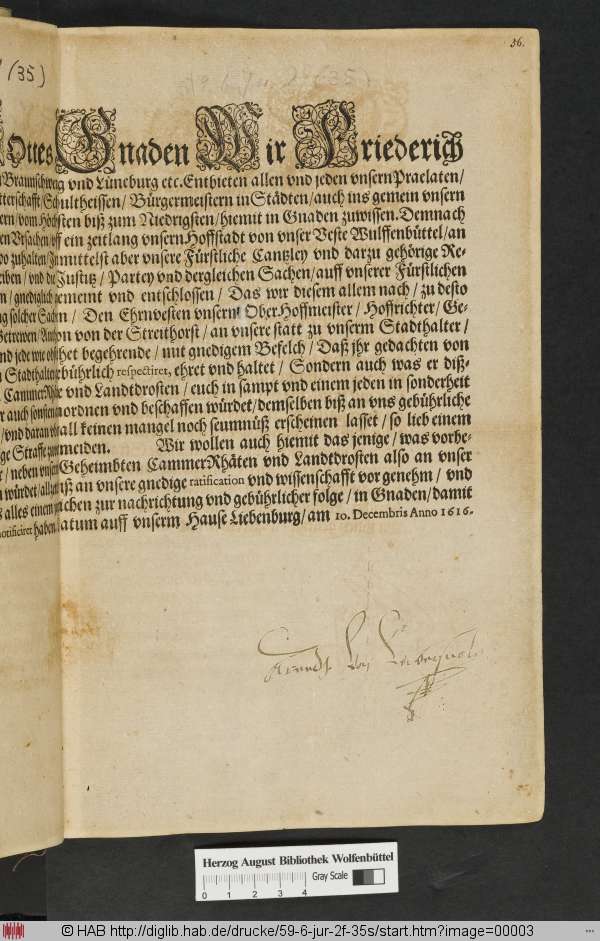 56.
(35)
Ottes Gnaden Wir Friederich
n Braunschweig vnd Lüneburg etc. Entbieten allen vnd jeden vnsern Praelaten/
tterschafft/ Schultheissen/ Bürgermeistern in Städten/ auch ins gemein vnsern
ern/ vom Höchsten biß zum Niedrigsten/ hiemit in Gnaden zuwissen. Demnach
en Vrsachen/ auff ein zeitlang vnsern Hoffstadt von vnser Veste Wulffenbüttel/ an
vo zuhalten/ Inmittelst aber vnsere Fürstliche Cantzley vnd darzu gehörige Re-
eiben/ vnd die Justitz/ Partey vnd dergleichen Sachen/ auff vnserer Fürstlichen
n/ gnediglich gemeint vnd entschlossen/ Das wir diesem allem nach/ zu desto
ng solcher Sachen/ Den Ehrnvesten vnsern Ober Hoffmeister/ Hoffrichter/ Ge-
Getrewen/ von der Streithorst/ an vnsere statt zu vnserm Stadthalter/
nd jede wie begehrende/ mit gnedigem Befelch/ Daß jhr gedachten von
n Stadthalter gebührlich respectiret, ehret vnd haltet/ Sondern auch was er diß-
Cammer vnd Landtdrosten/ euch in sampt vnd einem jeden in sonderheit
r auch sonsten ordnen vnd beschaffen würdet/ demselben biß an vns gebührliche
/ vnd daran all keinen mangel noch seumnüß erscheinen lasset/ so lieb einem
ge Straffe zumeiden. Wir wollen auch hiemit das jenige/ was vorbe-
r/ neben vnsern Geheimbten CammerRhäten vnd Landtdrosten also an vnser
n würdet/ biß an vnsere gnedige ratification vnd wissenschafft vor genehm/ vnd
s alles einem sachen zur nachrichtung vnd gebührlicher folge/ in Gnaden/ damit
notificiret haben Datum auff vnserm Hause Liebenburg/ am 10. Decembris Anno 1616.
Herzog August Bibliothek Wolfenbüttel
Gray Scale
0 1 2 3 4
© HAB http://diglib.hab.de/drucke/59-6-jur-2f-35s/start.htm?image=00003